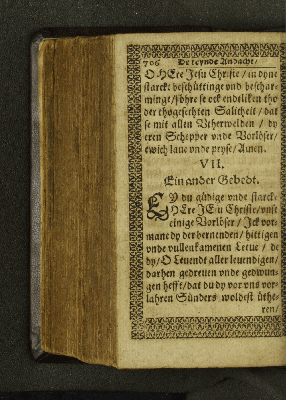 706 De teynde Andacht/
O HEre Jesu Christe/ in dyne
starcke beschüttinge vnd beschar-
minge/ vöhre se ock endtliken tho
der thogesechten Salicheit/ dat
se mit allen Vtherwelden / dy
eren Schepper vnde Vorlöser/
ewich laue vnde pryse/ Amen.
VII.
Ein ander Gebedt.
EY du güdige vnde starcke
HEre JEsu Christe/ vnse
einige Vorlöser/ Ick vor-
mane dy der bernenden/ hittigen
vnde vullenkamenen Leeue / de
dy/ O Leuende aller leuendigen/
darhen gedreuen vnde gedwun-
gen hefft/ dat du dy vor vns vor-
lahren Sünders woldest üthe-
ren/